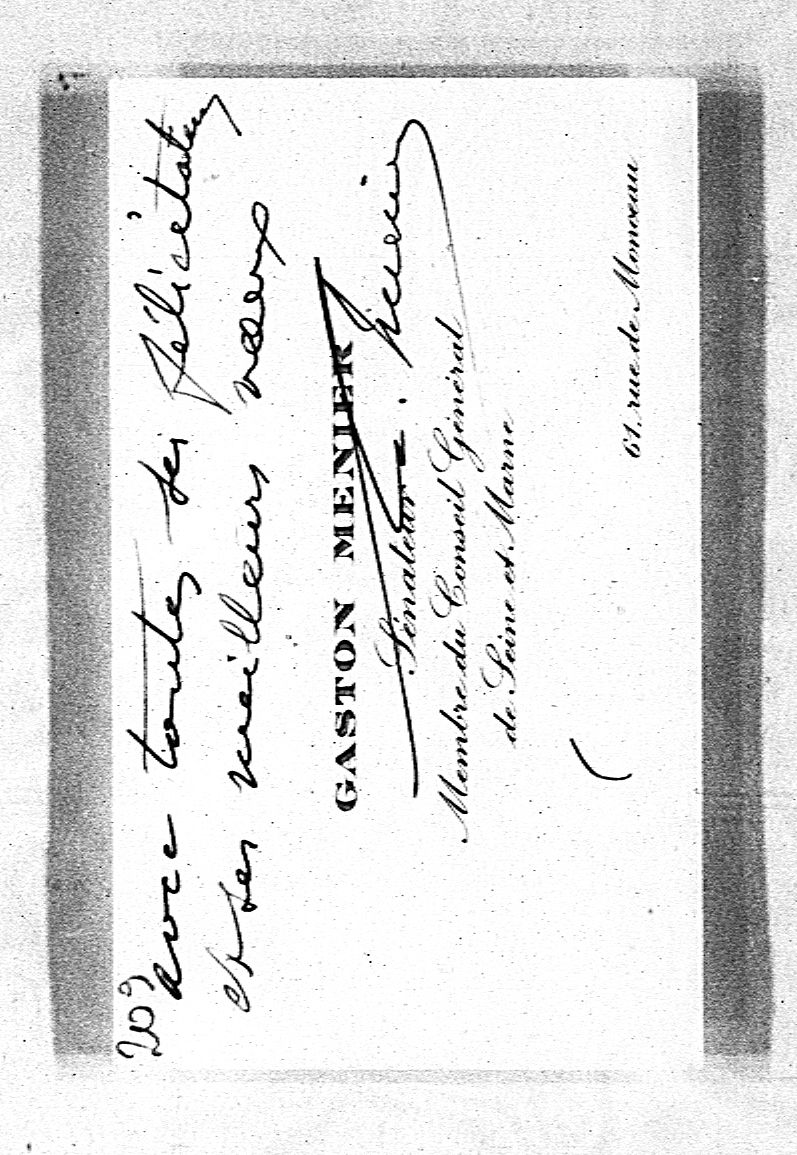 209
avec toutes ses félicitations
et ses meilleurs vœux
GASTON MENIER
Sénateur
G. Menier
Membre du Conseil Général
de Seine et Marne
61, rue de Monceau